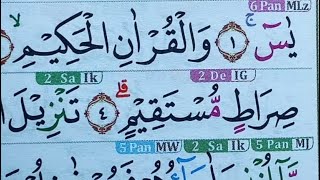 6 Pan MLz
يٰسٓ ١ وَالْقُرْاٰنِ الْحَكِيْمِ لا
2 Sa Ik 2 De IG
صِرَاطٍ مُّسْتَقِيْمٍ ٤ تَنْزِيْلَ
5 Pan MW 2 Sa Ik 5 Pan MJ